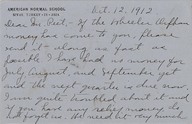 AMERICAN NORMAL SCHOOL
Oct. 12, 1912
Dear Mr. Peet,- If the Wheeler Orphan
money has come to you, please
send it along as fast as
possible. I have had no money for
July, August, and September yet
and the next quarter is due now
I am quite troubled about it and
if you have any relief money do
not forget us. We need it very much